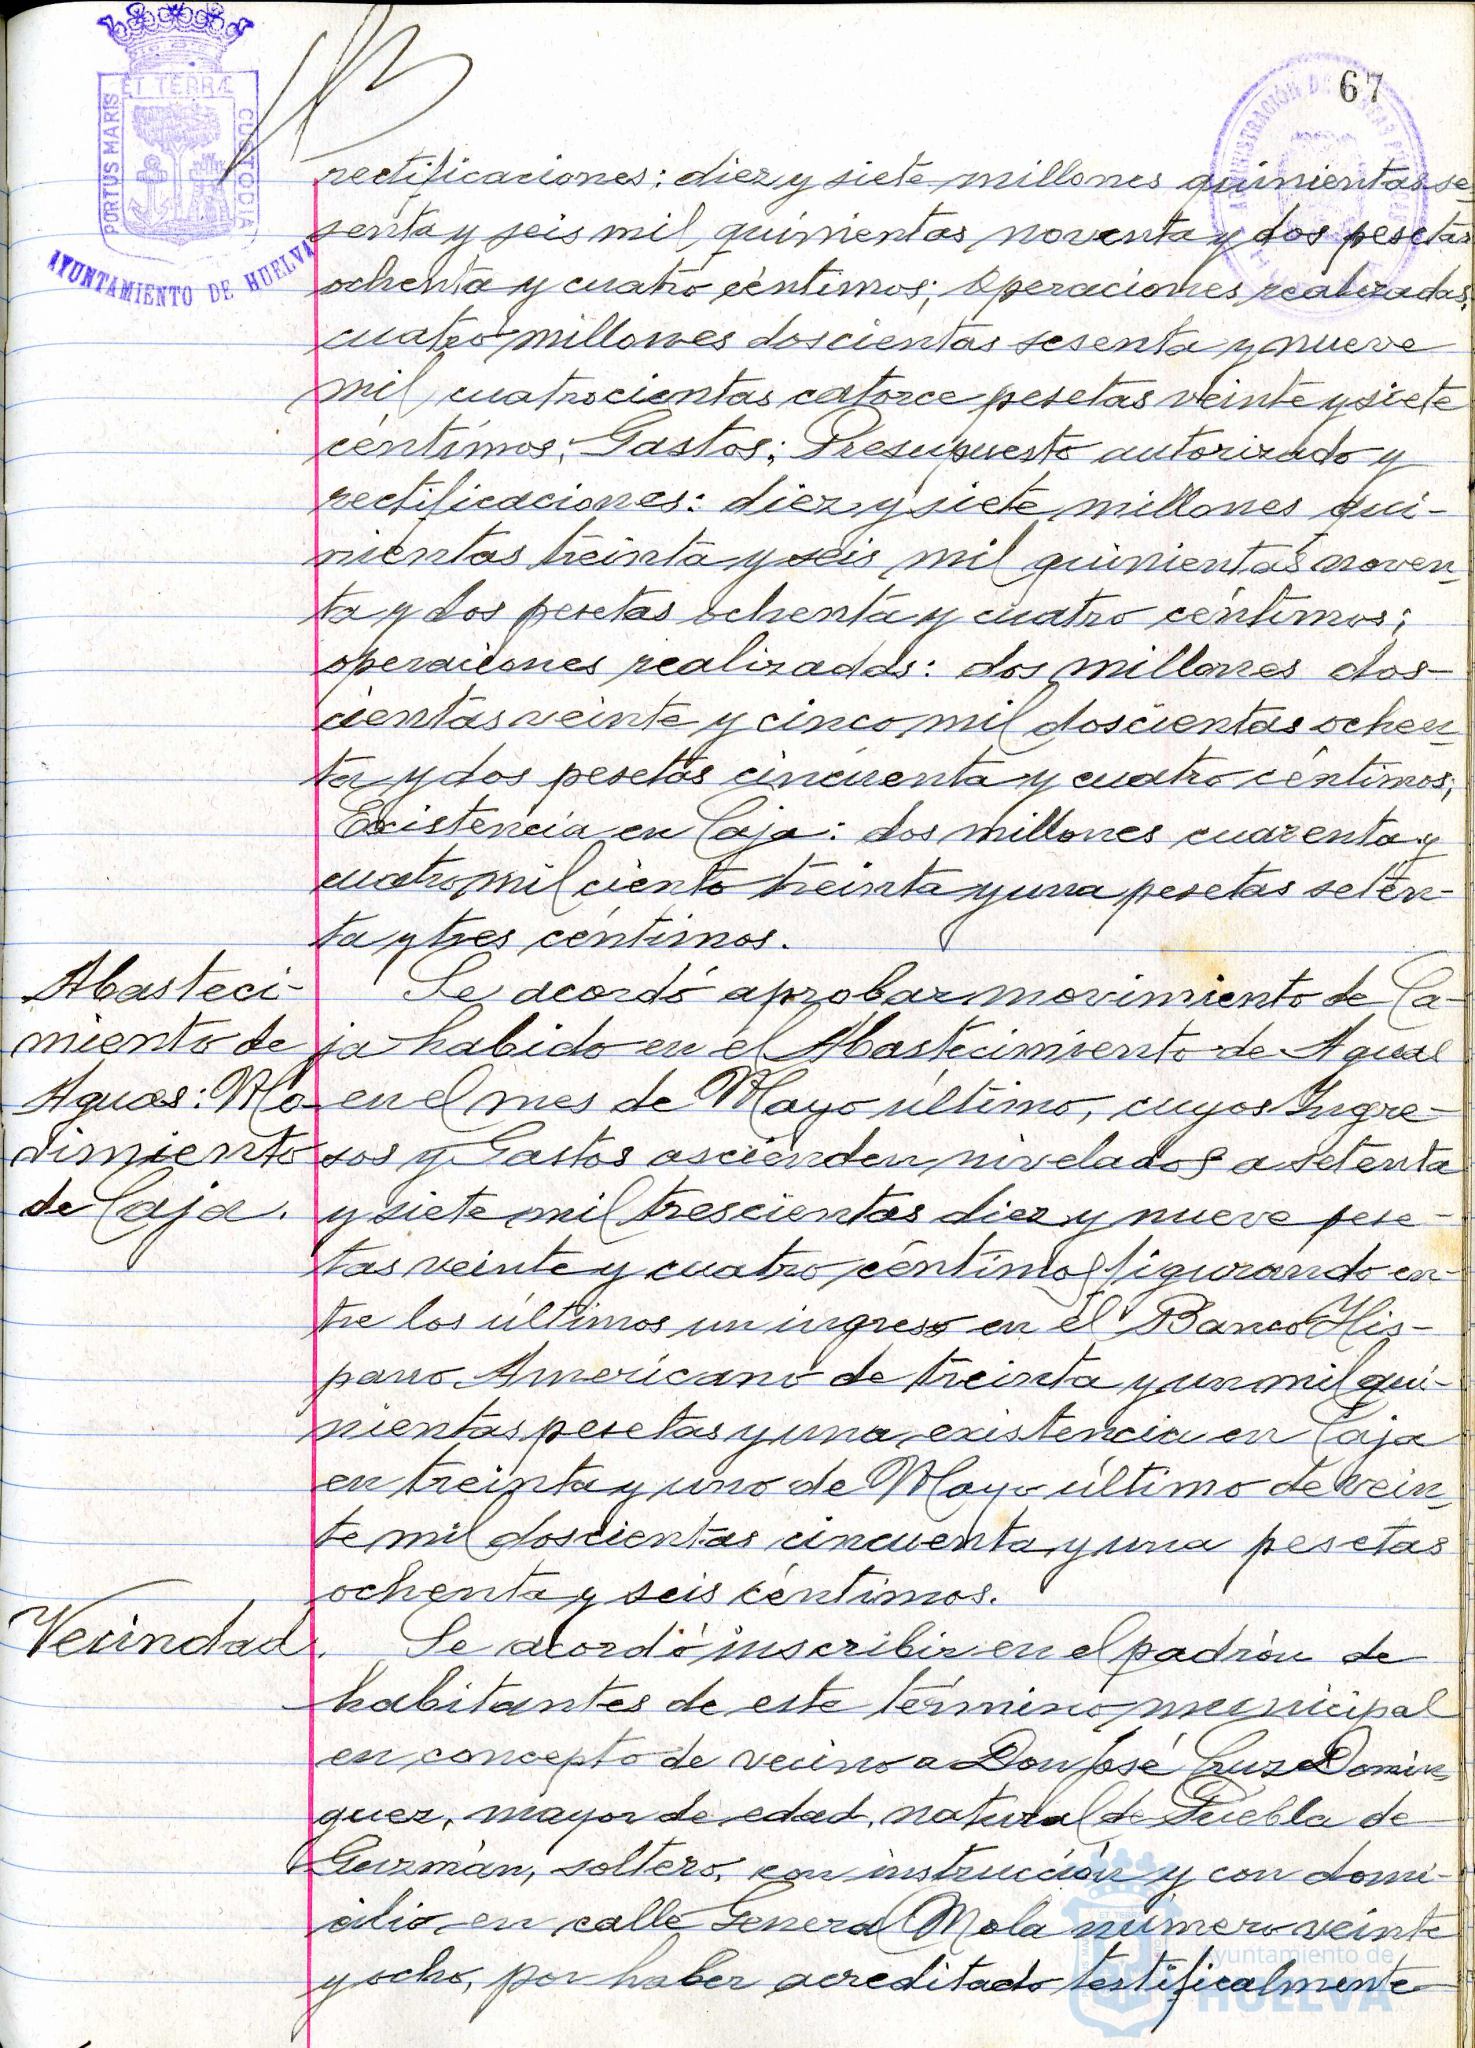 67
ET TERRÆ
PORTUS MARIS
CUSTODIA
AYUNTAMIENTO DE HUELVA
rectificaciones: diez y siete millones quinientas se-
senta y seis mil quinientas noventa y dos pesetas
ochenta y cuatro céntimos; operaciones realizadas,
cuatro millones doscientas sesenta y nueve
mil cuatrocientas catorce pesetas veinte y siete
céntimos; Gastos; Presupuesto autorizado y
rectificaciones: diez y siete millones qui-
nientas treinta y seis mil quinientas noven-
ta y dos pesetas ochenta y cuatro céntimos;
operaciones realizadas: dos millones dos-
cientas veinte y cinco mil doscientas ochen-
ta y dos pesetas cincuenta y cuatro céntimos;
Existencia en Caja: dos millones cuarenta y
cuatro mil ciento treinta y una pesetas seten-
ta y tres céntimos.
Abasteci-
miento de
Aguas: Mo-
vimiento
de Caja.
Se acordó aprobar movimiento de Ca-
ja habido en el Abastecimiento de Aguas
en el mes de Mayo último, cuyos Ingre-
sos y Gastos ascienden nivelados a setenta
y siete mil trescientas diez y nueve pese-
tas veinte y cuatro céntimos figurando en-
tre los últimos un ingreso en el Banco His-
pano Americano de treinta y un mil qui-
nientas pesetas y una existencia en Caja
en treinta y uno de Mayo último de vein-
te mil doscientas cincuenta y una pesetas
ochenta y seis céntimos.
Vecindad.
Se acordó inscribir en el padrón de
habitantes de este término municipal
en concepto de vecino a Don José Cruz Domín-
guez, mayor de edad, natural de Puebla de
Guzmán, soltero, con instrucción y con domi-
cilio en calle General Mola número veinte
y ocho, por haber acreditado testificalmente
Ayuntamiento de
HUELVA